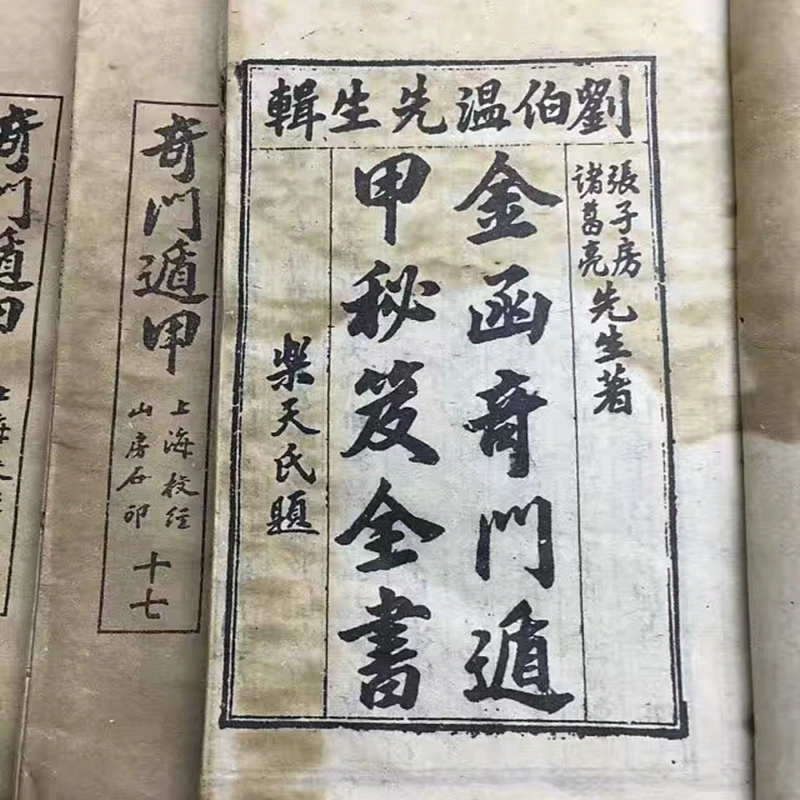 劉伯温先生輯
張子房
諸葛亮
先生著
金函奇門遁
甲秘笈全書
樂天氏題
奇門遁甲
上海校经
山房石印
十七
奇門遁甲
上海